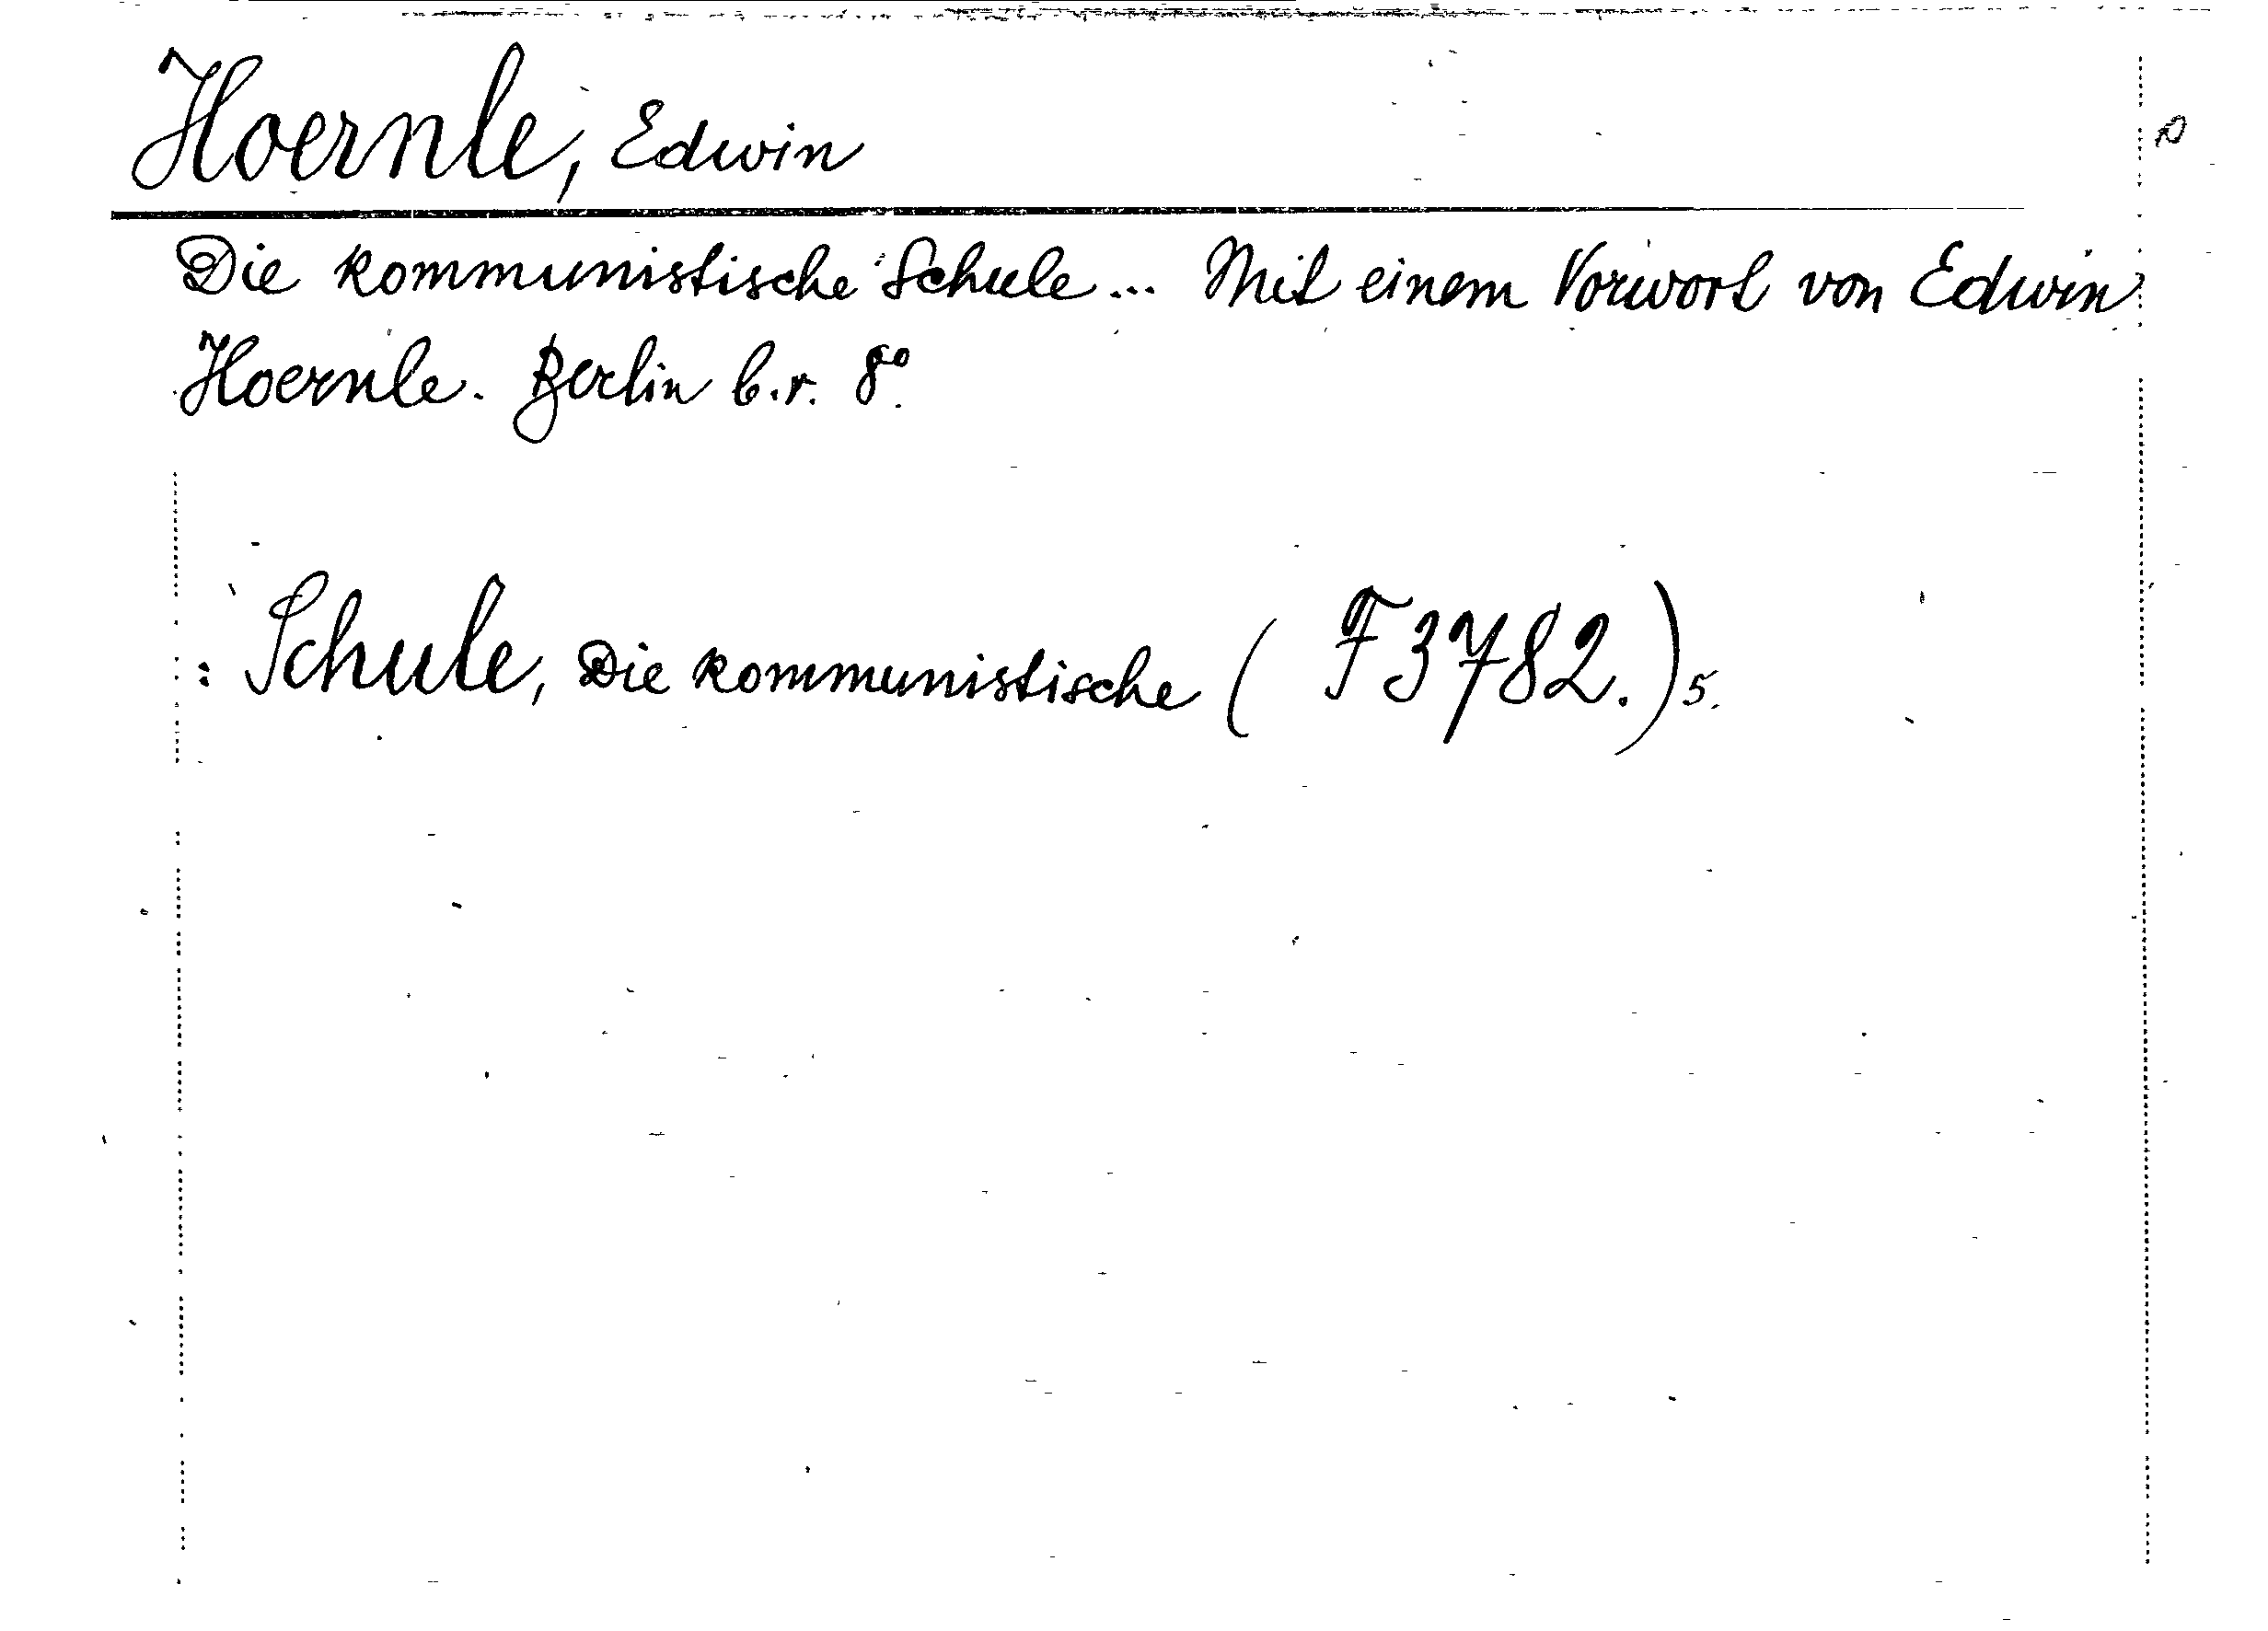 Hoernle, Edwin
Die kommunistische Schule... Mit einem Vorwort von Edwin
Hoernle. Berlin b.r. 8°.
: Schule, Die kommunistische (F3782.) 5.